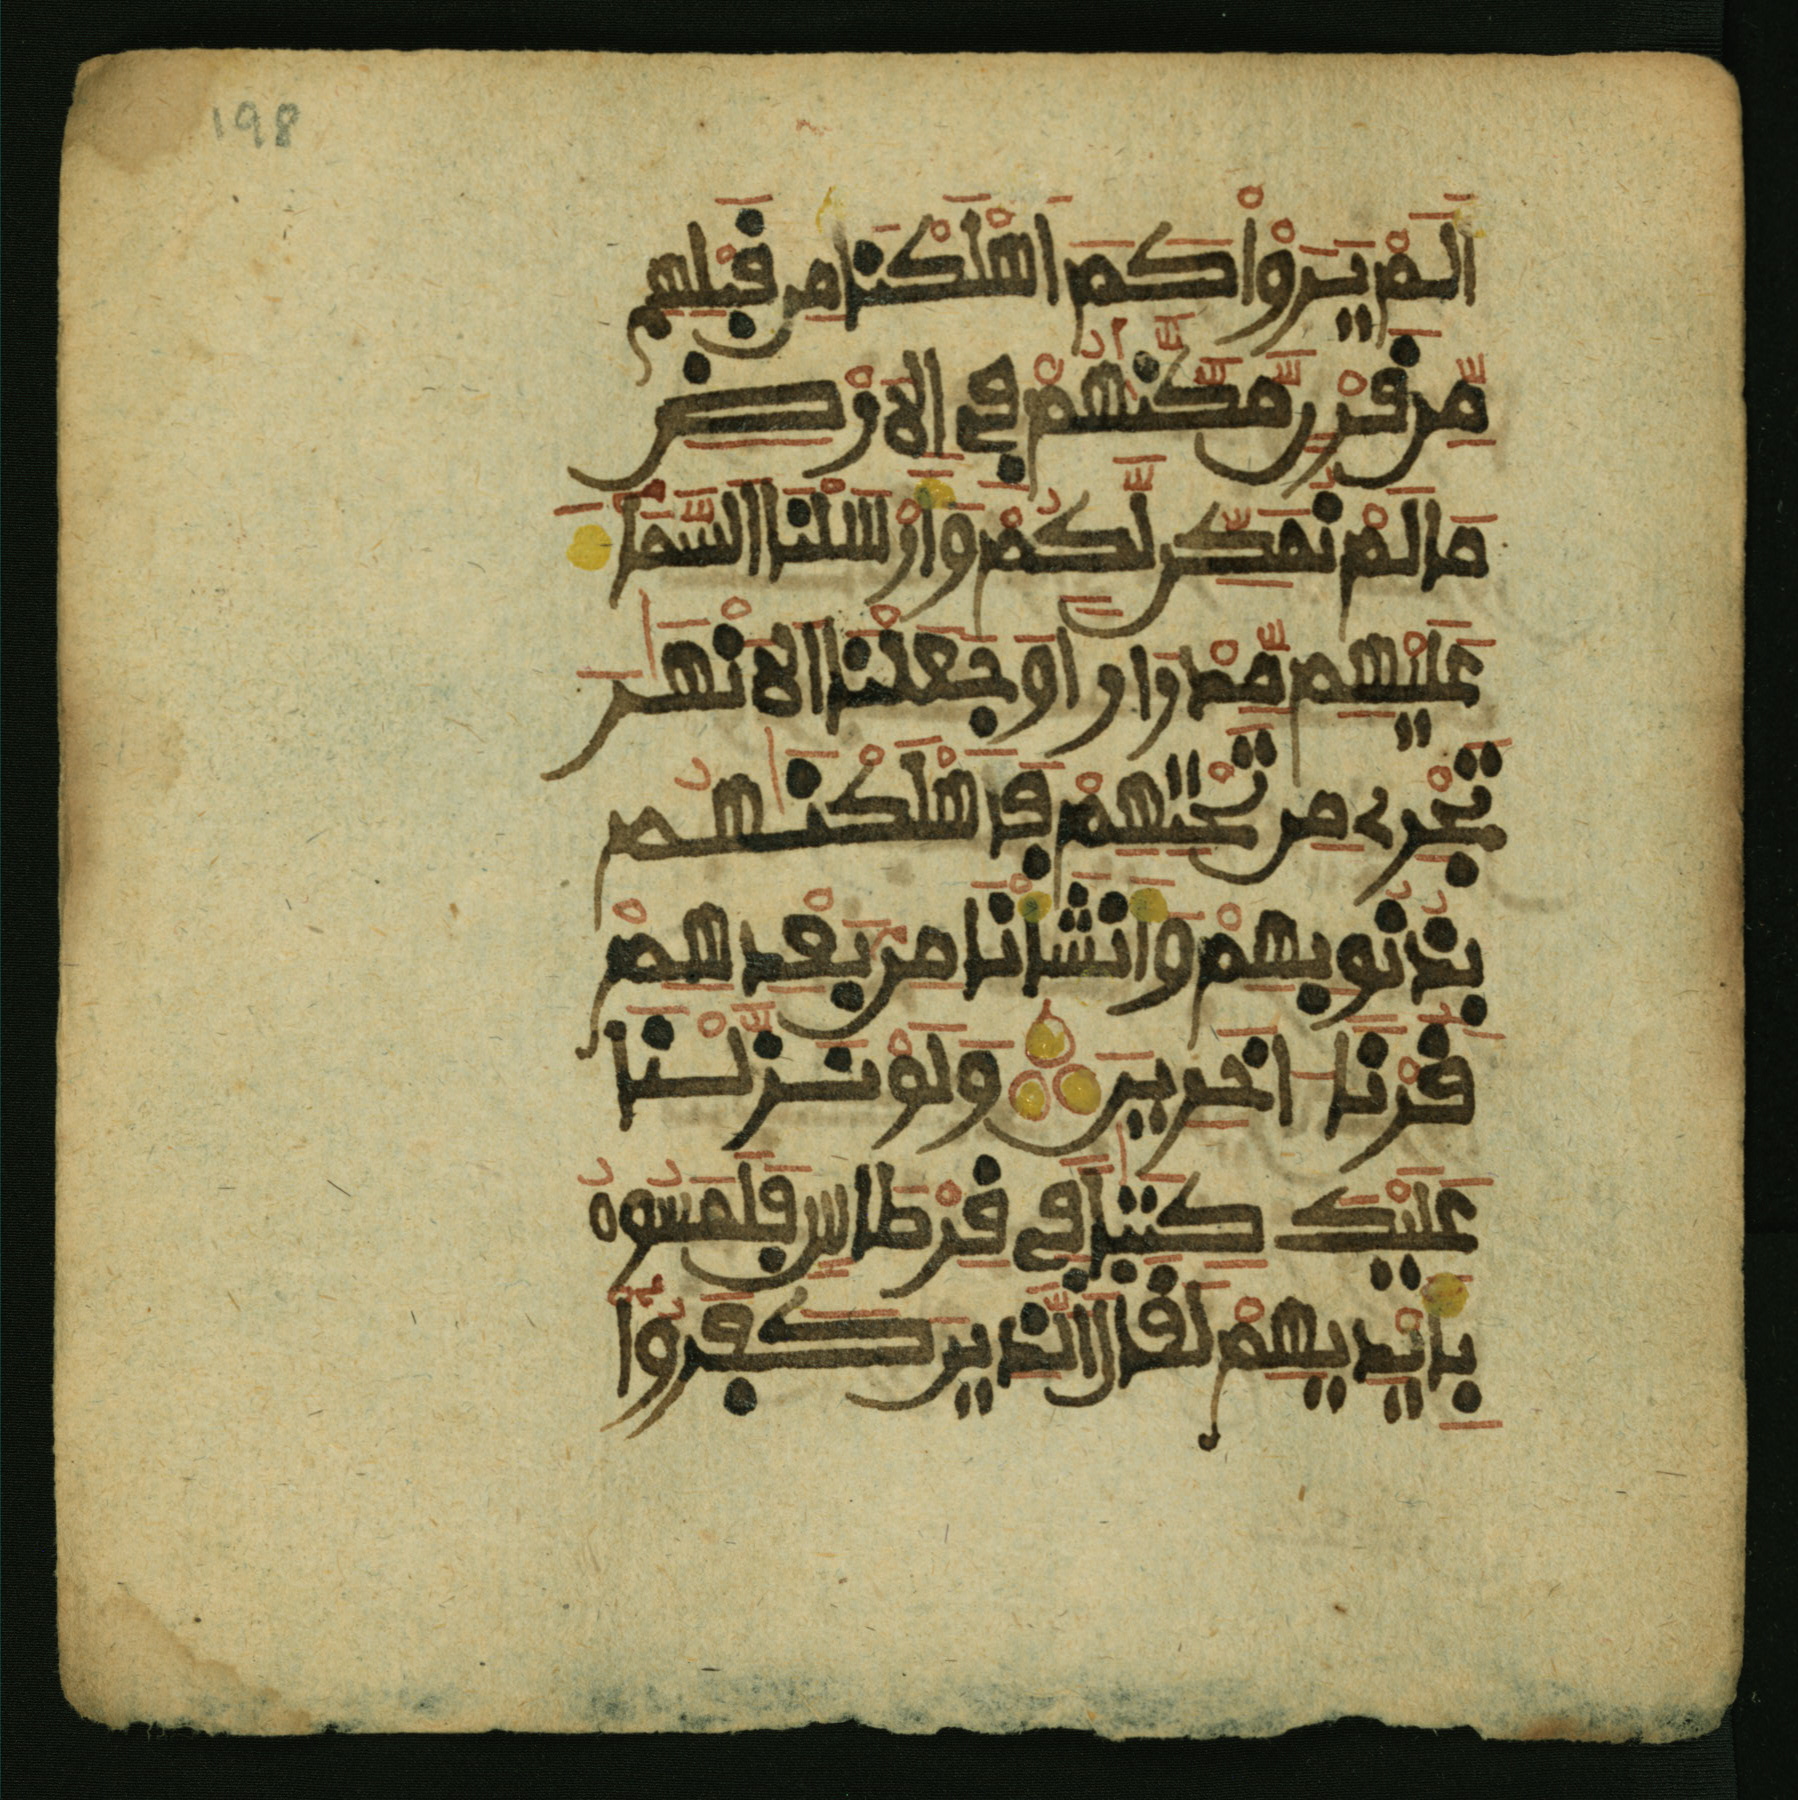 198
اَلَمْ يَرَوْاْ كَمَ اَهْلَكْنَا مِن قَبْلِهِم
مِّن قَرْنٍ مَّكَّنَّهُمْ فِي الَارْضِ
مَا لَمْ نُمَكِّن لَّكُمْ وَأَرْسَلْنَا السَّمَآءَ
عَلَيْهِم مِّدْرَاراً وَجَعَلْنَا الَانْهَٰرَ
تَجْرِے مِن تَحْتِهِمْ فَأَهْلَكْنَٰهُم
بِذُنُوبِهِمْ وَأَنشَأْنَا مِن بَعْدِهِمْ
قَرْناً اخَرِينَ وَلَوْ نَزَّلْنَا
عَلَيْكَ كِتَٰباً فِي قِرْطَاسٍ فَلَمَسُوهُ
بِأَيْدِيهِمْ لَقَالَ الَّذِينَ كَفَرُوٓاْ